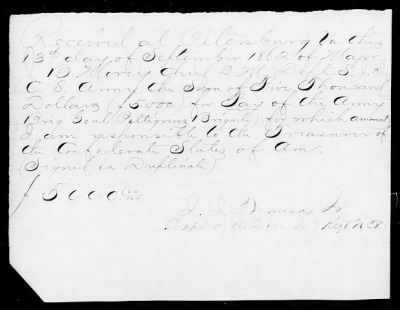 Received at Petersburg Va this
13th day of September 1862 of Major
C S Army the sum of Five Thousand
Dollars $5000 for Pay of the Army
Brig Genl Pettigrews Brigade for which amount
I am responsible to the Treasurer of
the Confederate States of Am.
(Signed in Duplicate)
$5000 00/100
J. J. Jr
Capt Regt N.C.